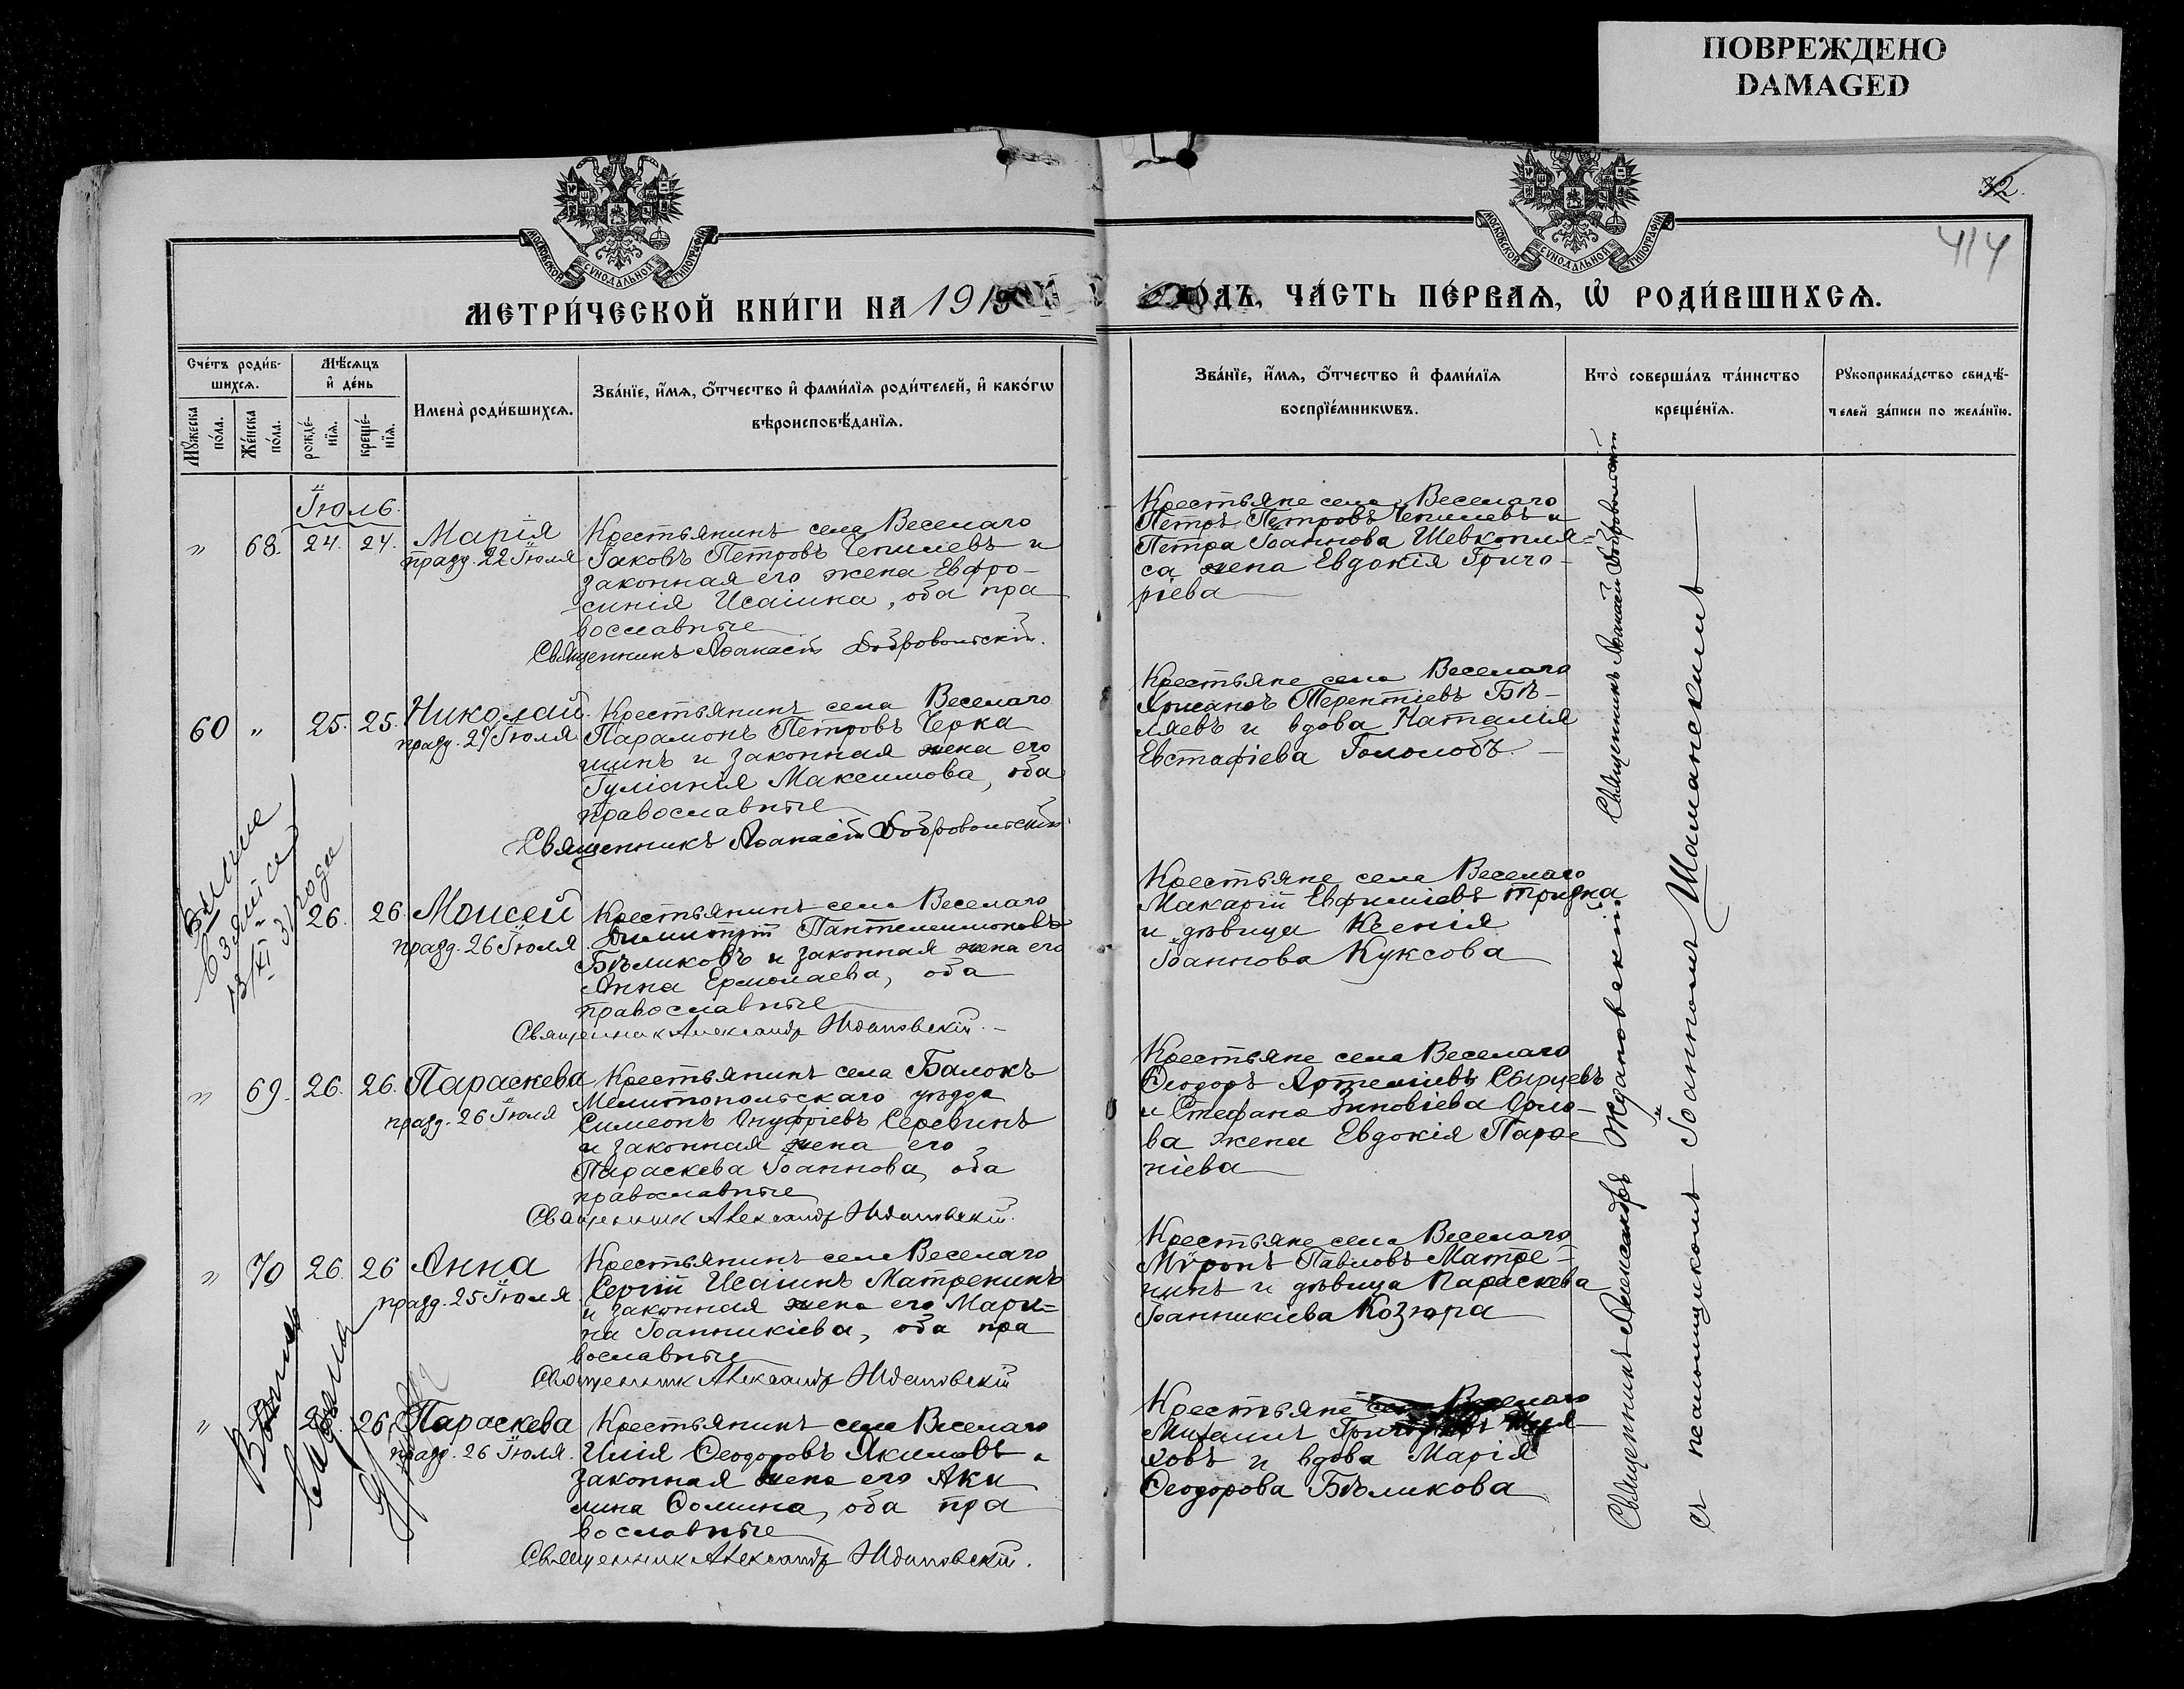 ПОВРЕЖДЕНО
DAMAGED
72.
414
МОСКОВСКОЙ СѴНОДАЛЬНОЙ ТИПОГРАФІИ
МОСКОВСКОЙ СѴНОДАЛЬНОЙ ТИПОГРАФІИ
МЕТРИ́ЧЕСКОЙ КНИ́ГИ НА 191
ГО́ДЪ, ЧА́СТЬ ПЕ́РВАѦ, Ѽ РОДИ́ВШИХСѦ.
Сче́тъ роди́в-
шихсѧ.
Мꙋ́жеска по́ла.
Же́нска по́ла.
Мѣ́сѧцъ
и҆ де́нь
рожде́-нїѧ.
креще́-нїѧ.
Имена̀ роди́вшихсѧ.
Зва́нїе, и҆́мѧ, ѻ҆́тчество и҆ фами́лїѧ роди́телей, и҆ како́гѡ
вѣроисповѣ́данїѧ.
Зва́нїе, и҆́мѧ, ѻ҆́тчество и҆ фами́лїѧ
воспрїе́мникѡвъ.
Кто̀ соверша́лъ та́инство
креще́нїѧ.
Рꙋкоприкла́дство свидѣ́-
телей за́писи по жела́нїю.
Іюль.
" 68. 24. 24. Марія
празд. 22 Іюля
Крестьянинъ села Веселаго
Іаковъ Петровъ Чепилевъ и
законная его жена Евфро-
синія Исаіина, оба пра
вославные
Священникъ Аѳанасій Добровольскій.
Крестьяне села Веселаго
Петръ Петровъ Чепилевъ и
Петра Іоаннова Шевкопля=
са жена Евдокія Григо-
ріева
60 " 25. 25. Николай
празд. 27 Іюля
Крестьянинъ села Веселаго
Парамонъ Петровъ Черка
шинъ и законная жена его
Іуліанія Максимова, оба
православные
Священникъ Аѳанасій Добровольскій
Крестьяне села Веселаго
Хрисанѳъ Терентіевъ Бѣ-
ляевъ и вдова Наталія
Евстафіева Гололобъ.
взята
13/XI 31 года
26. 26. Моисей
празд. 26 Іюля
Крестьянинъ села Веселаго
Димитрій Пантелеимоновъ
Бѣликовъ и законная жена его
Анна Ермолаева, оба
православные
Священникъ Александръ Ждановскій.
Крестьяне села Веселаго
Макарій Евфиміевъ Тризна
и дѣвица Ксенія
Іоаннова Куксова
" 69. 26. 26. Параскева
празд. 26 Іюля
Крестьянинъ села Балокъ
Мелитопольскаго уѣзда
Симеонъ Онуфріевъ Серевинъ
и законная жена его
Параскева Іоаннова, оба
православные
Священникъ Александръ Ждановскій.
Крестьяне села Веселаго
Ѳеодоръ Артеміевъ Свирцевъ
и Стефана Зиновіева Орло-
ва жена Евдокія Паро-
ніева
" 70 26. 26 Анна
празд. 25 Іюля
Крестьянинъ села Веселаго
Сергій Исаіинъ Матренинъ
и законная жена его Мари=
на Іоанникіева, оба пра
вославные
Священникъ Александръ Ждановскій
Крестьяне села Веселаго
Мѵронъ Павловъ Матре-
нинъ и дѣвица Параскева
Іоанникіева Козюра
" 26. Параскева
празд. 26 Іюля.
Крестьянинъ села Веселаго
Илія Ѳеодоровъ Якимовъ и
законная жена его Аки
лина Ѳомина, оба пра
вославные
Священникъ Александръ Ждановскій.
Крестьяне села Веселаго
Михаилъ
ховъ и вдова Марія
Ѳеодорова Бѣликова
Священникъ Аѳанасій Добровольскій
Священникъ Александръ Ждановскій и
съ псаломщикомъ Іоанномъ Шаманскимъ